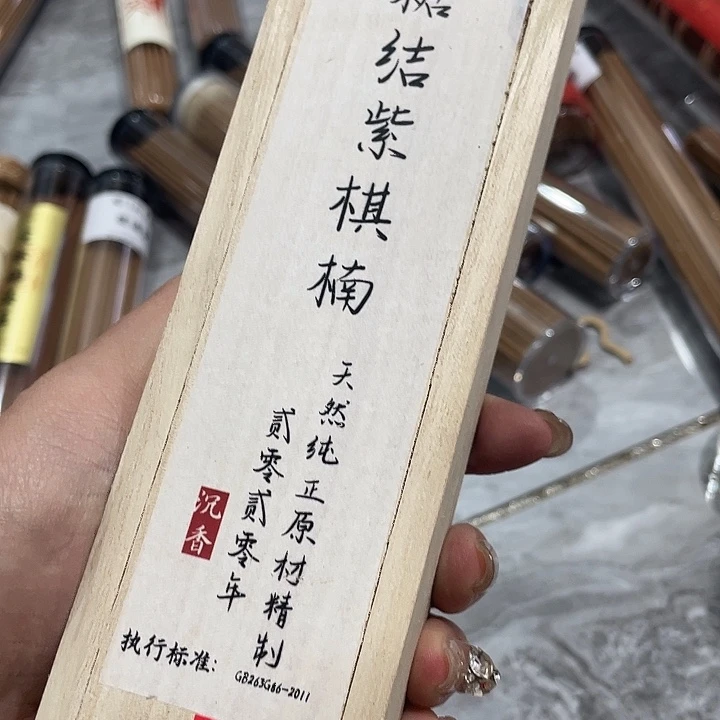 结紫棋楠
天然纯正原材精制
贰零贰零年
沉香
执行标准：
GB263G86-2011